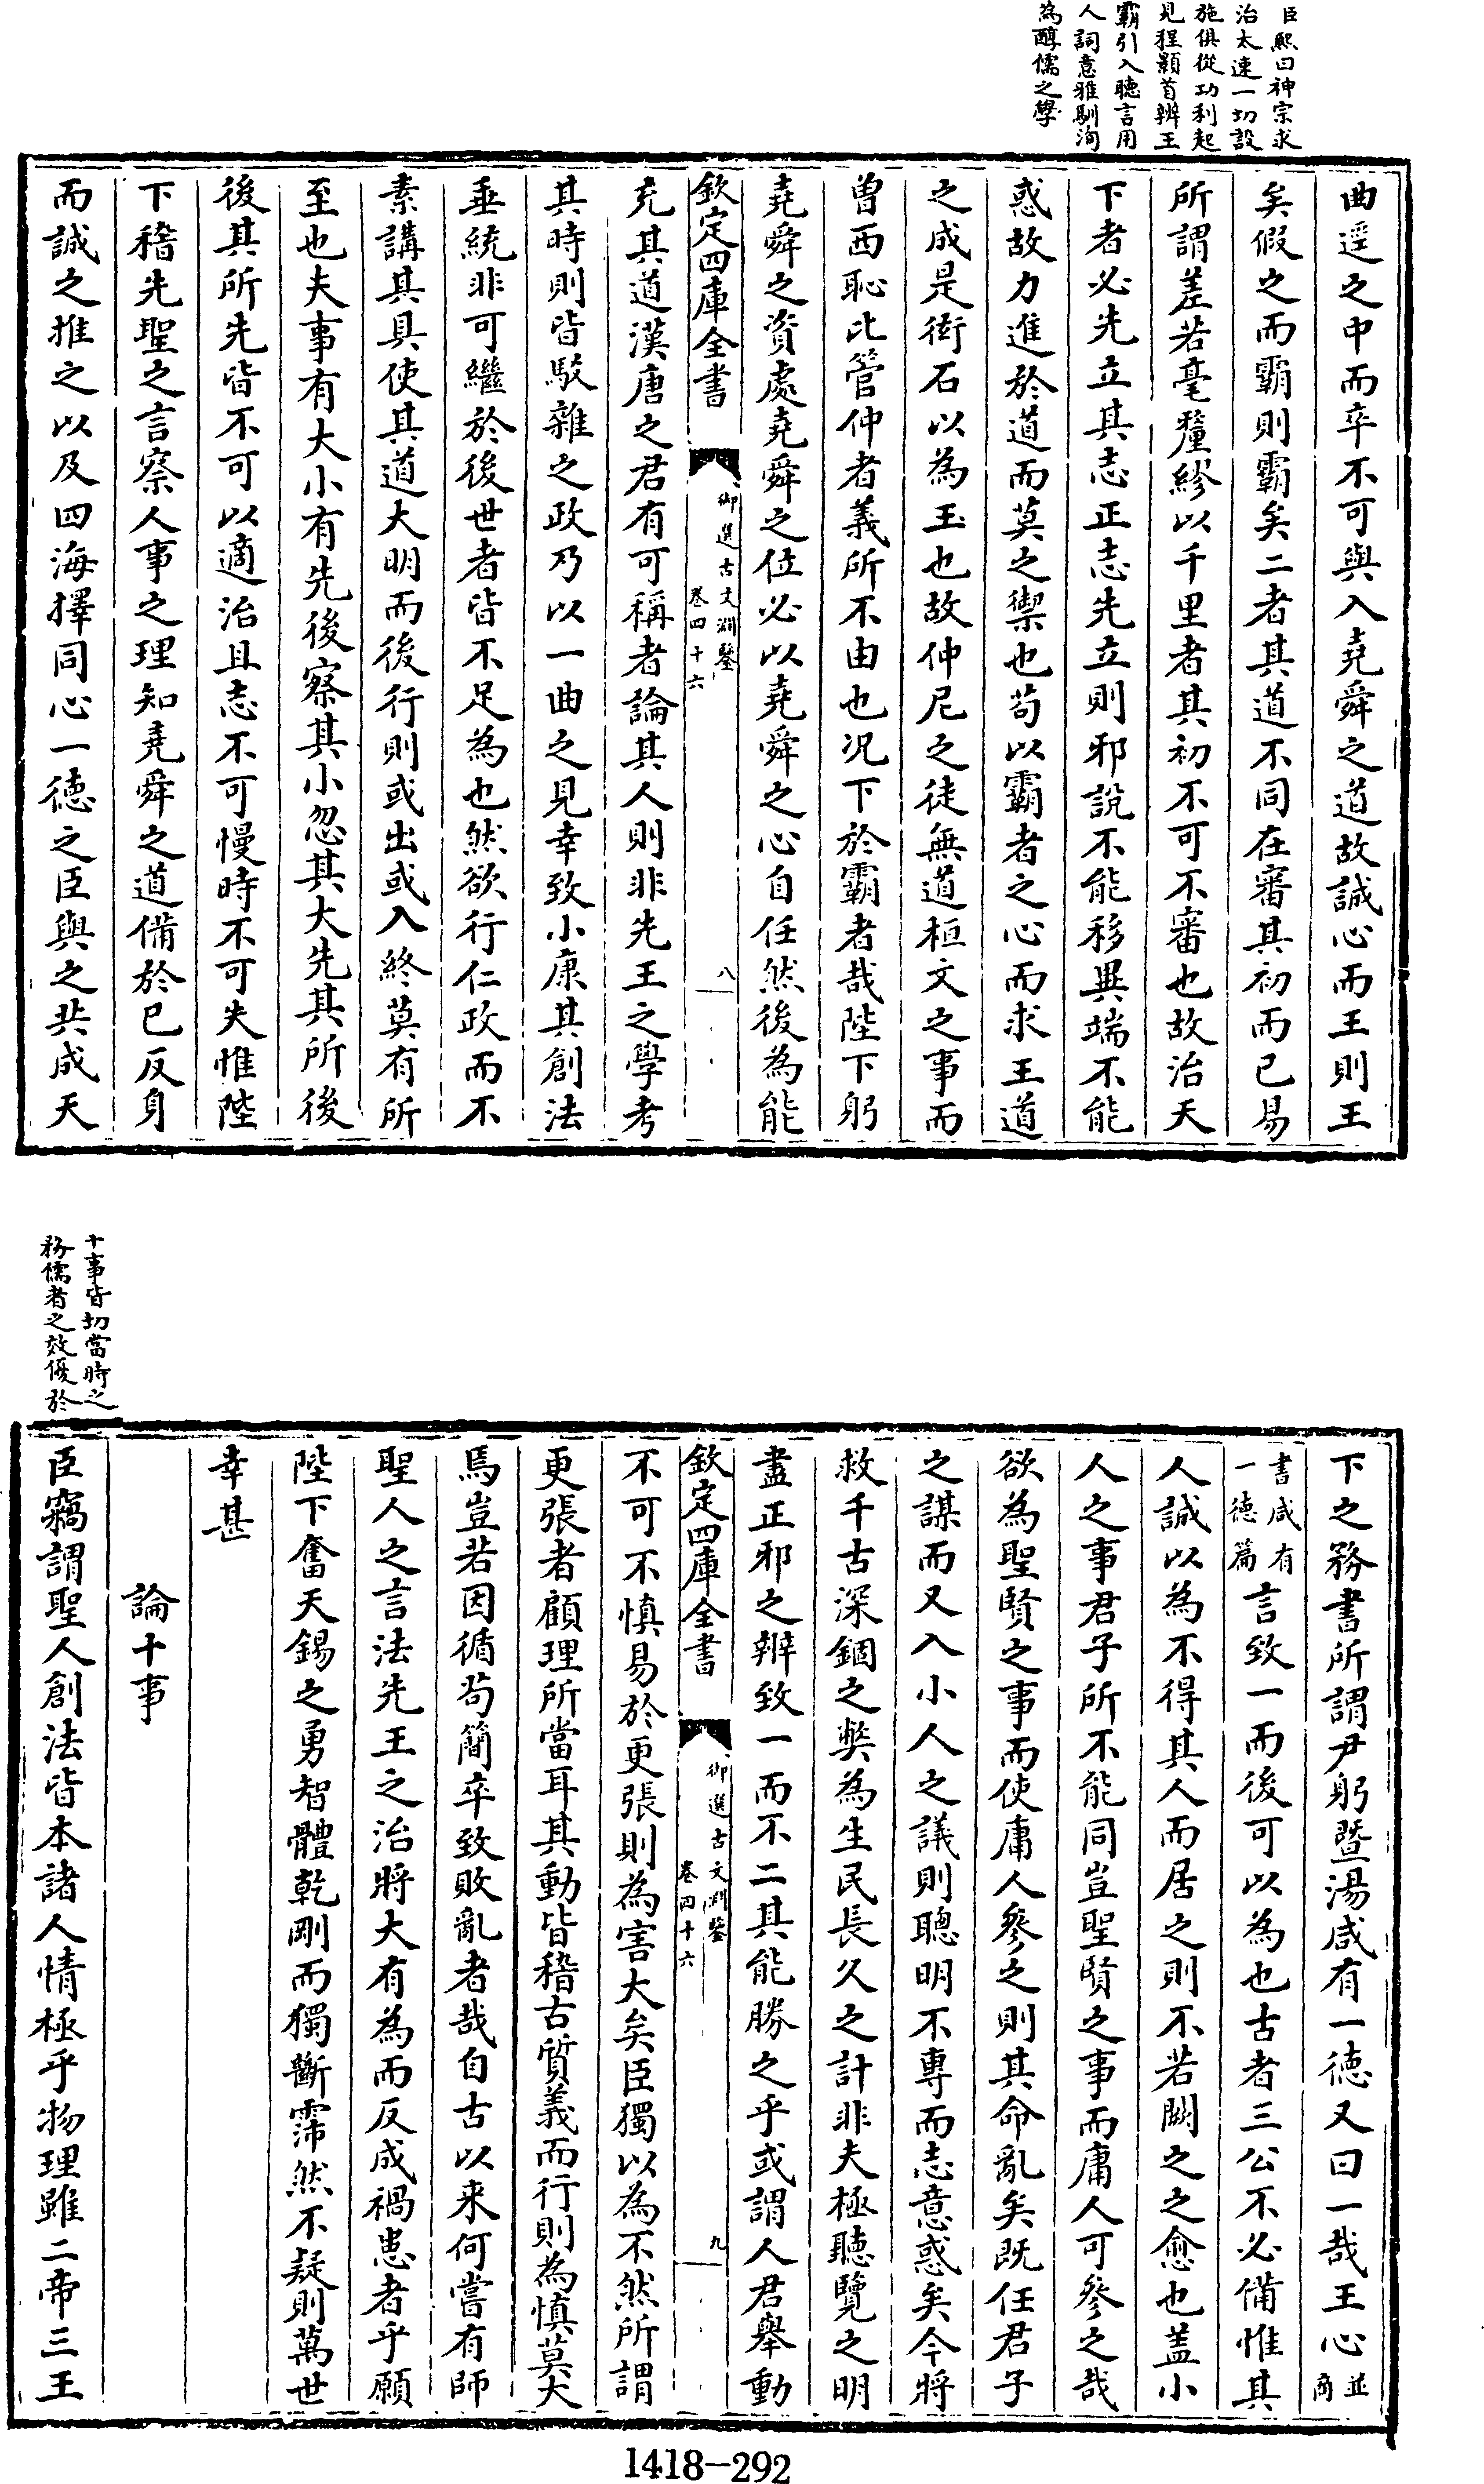 臣熙曰神宗求
治太速一切設
施俱從功利起
見程顥首辨王
霸引入聴言用
人詞意雅馴洵
為醇儒之學
曲逕之中而卒不可與入堯舜之道故誠心而王則王
矣假之而霸則霸矣二者其道不同在審其初而已易
所謂差若毫釐繆以千里者其初不可不審也故治天
下者必先立其志正志先立則邪説不能移異端不能
惑故力進於道而莫之禦也苟以霸者之心而求王道
之成是衒石以為玉也故仲尼之徒無道桓文之事而
曽西恥比管仲者義所不由也况下於霸者哉陛下躬
堯舜之資處堯舜之位必以堯舜之心自任然後為能
欽定四庫全書
御選古文淵鑒
卷四十六
八
充其道漢唐之君有可稱者論其人則非先王之學考
其時則皆駁雜之政乃以一曲之見幸致小康其創法
垂統非可繼於後世者皆不足為也然欲行仁政而不
素講其具使其道大明而後行則或出或入終莫有所
至也夫事有大小有先後察其小忽其大先其所後
後其所先皆不可以適治且志不可慢時不可失惟陛
下稽先聖之言察人事之理知堯舜之道備於已反身
而誠之推之以及四海擇同心一徳之臣與之共成天
十事皆切當時之
務儒者之效優於
下之務書所謂尹躬暨湯咸有一徳又曰一哉王心並商
書咸有一徳篇言致一而後可以為也古者三公不必備惟其
人誠以為不得其人而居之則不若闕之之愈也盖小
人之事君子所不能同豈聖賢之事而庸人可參之哉
欲為聖賢之事而使庸人參之則其命亂矣既任君子
之謀而又入小人之議則聰明不專而志意惑矣今將
救千古深錮之弊為生民長久之計非夫極聽覽之明
盡正邪之辨致一而不二其能勝之乎或謂人君舉動
欽定四庫全書
御選古文淵鑒
卷四十六
九
不可不慎易於更張則為害大矣臣獨以為不然所謂
更張者顧理所當耳其動皆稽古質義而行則為慎莫大
焉豈若因循苟簡卒致敗亂者哉自古以来何嘗有師
聖人之言法先王之治將大有為而反成禍患者乎願
陛下奮天錫之勇智體乾剛而獨斷霈然不疑則萬世
幸甚
論十事
臣竊謂聖人創法皆本諸人情極乎物理雖二帝三王
1418-292